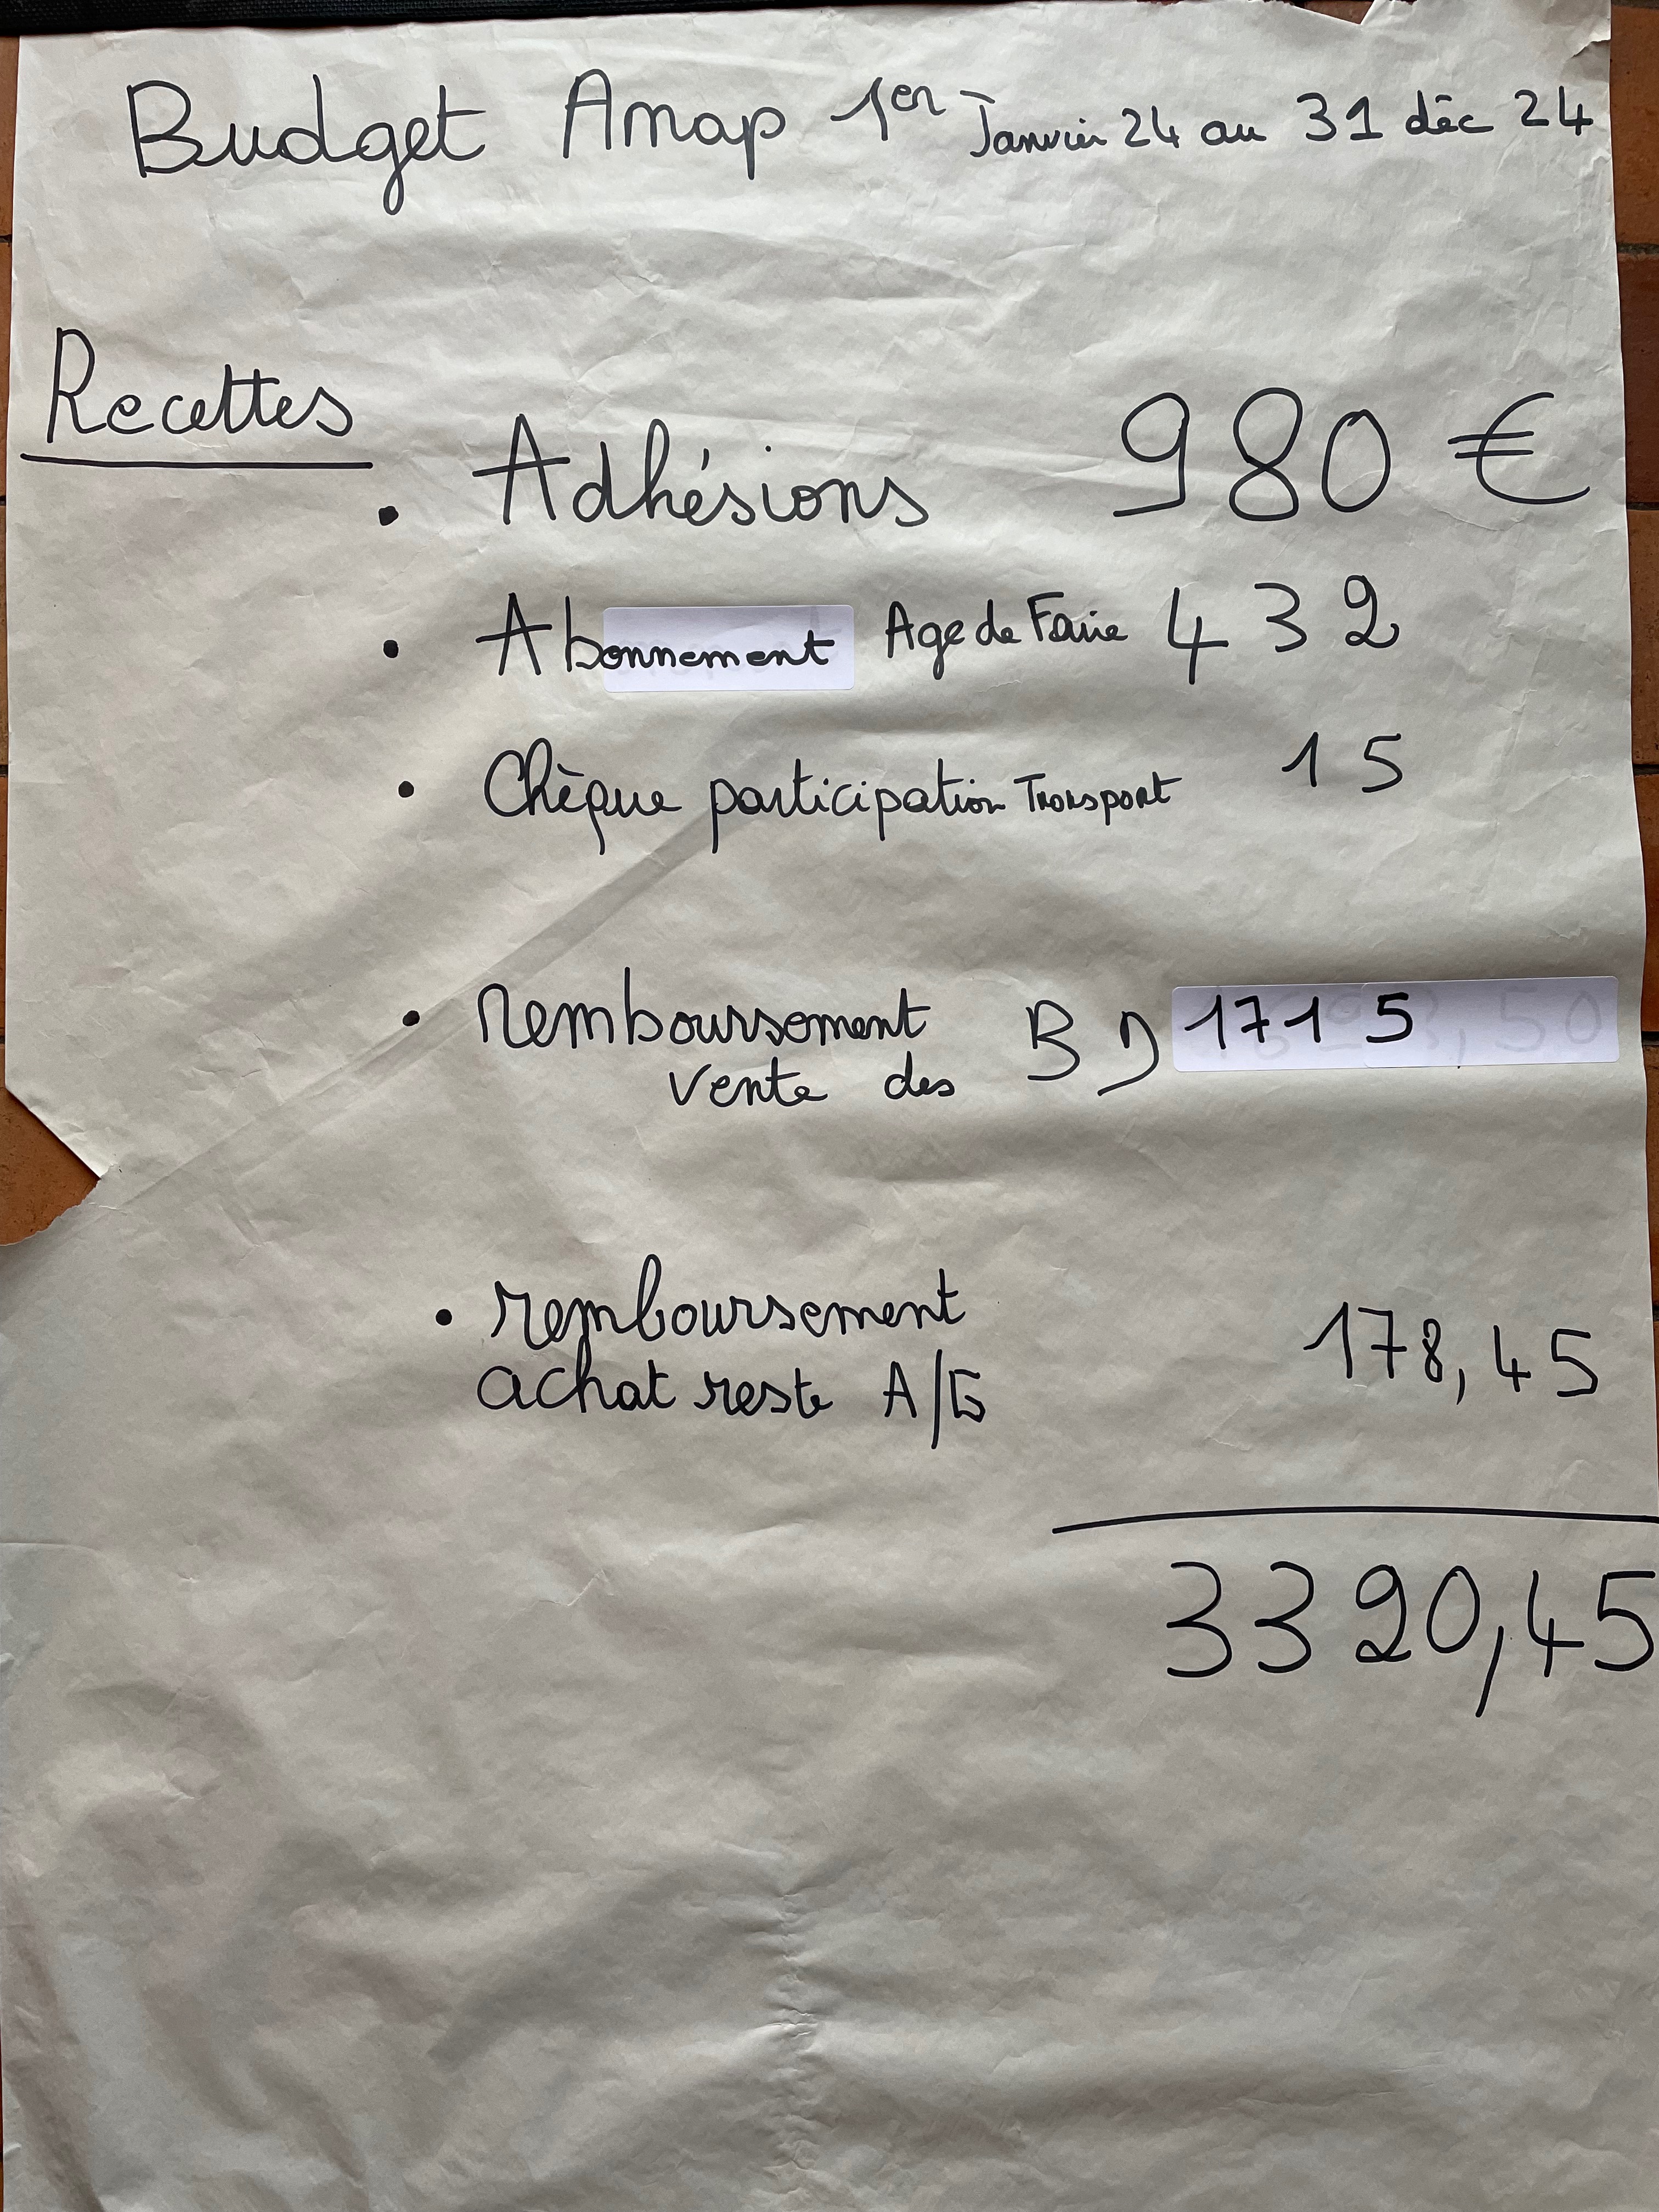 Budget Amap 1er Janvier 24 au 31 déc 24
Recettes
• Adhésions 980 €
• Abonnement Age de Faire 432
• Chèque participation Transport 15
• remboursement BD 1715
vente des
• remboursement 178,45
achat reste A/G
3320,45